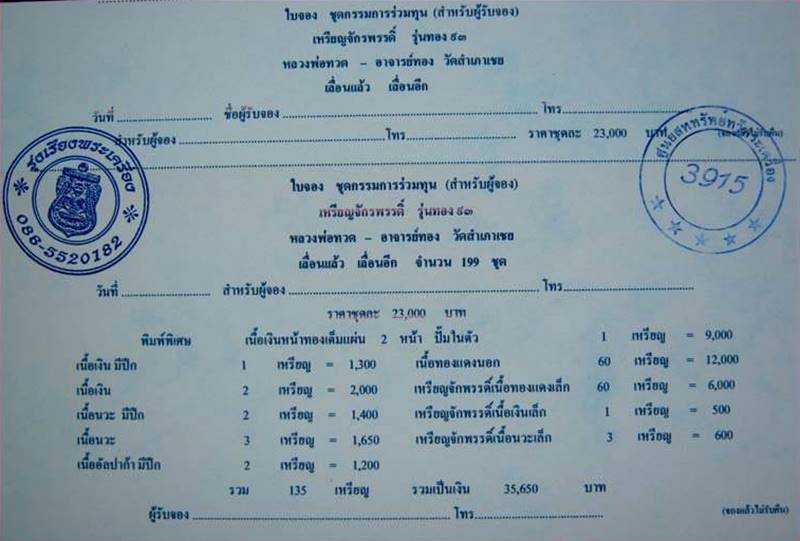 ใบจอง ชุดกรรมการร่วมทุน (สำหรับผู้รับจอง)
เหรียญจักรพรรดิ์ รุ่นทอง ๙๓
หลวงพ่อทวด - อาจารย์ทอง วัดสำเภาเชย
เลื่อนแล้ว เลื่อนอีก
วันที่ ชื่อผู้รับจอง โทร
สำหรับผู้จอง โทร ราคาชุดละ 23,000 บาท (จองแล้วไม่รับคืน)
รุ่งเรืองพระเครื่อง
086-5520182
3915
ใบจอง ชุดกรรมการร่วมทุน (สำหรับผู้จอง)
เหรียญจักรพรรดิ์ รุ่นทอง ๙๓
หลวงพ่อทวด - อาจารย์ทอง วัดสำเภาเชย
เลื่อนแล้ว เลื่อนอีก จำนวน 199 ชุด
วันที่ สำหรับผู้จอง โทร
ราคาชุดละ 23,000 บาท
พิมพ์พิเศษ เนื้อเงินหน้าทองเต็มแผ่น 2 หน้า ปั๊มในตัว 1 เหรียญ = 9,000
เนื้อเงิน มีปีก 1 เหรียญ = 1,300 เนื้อทองแดงนอก 60 เหรียญ = 12,000
เนื้อเงิน 2 เหรียญ = 2,000 เหรียญจักพรรดิ์เนื้อทองแดงเล็ก 60 เหรียญ = 6,000
เนื้อนวะ มีปีก 2 เหรียญ = 1,400 เหรียญจักพรรดิ์เนื้อเงินเล็ก 1 เหรียญ = 500
เนื้อนวะ 3 เหรียญ = 1,650 เหรียญจักพรรดิ์เนื้อนวะเล็ก 3 เหรียญ = 600
เนื้ออัลปาก้า มีปีก 2 เหรียญ = 1,200
รวม 135 เหรียญ รวมเป็นเงิน 35,650 บาท
ผู้รับจอง โทร (จองแล้วไม่รับคืน)